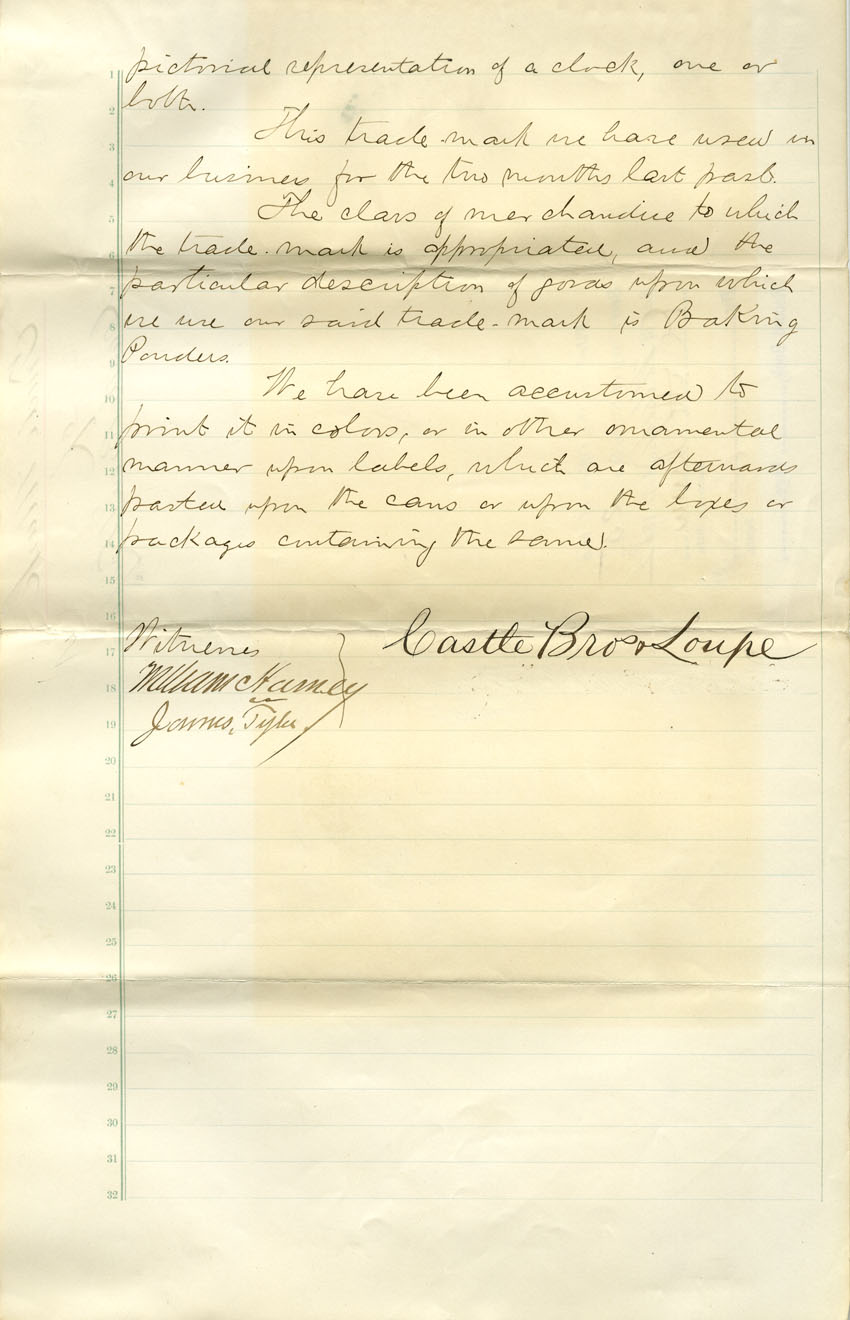 1 pictorial representation of a clock, one or
2 both.
3 This trade-mark we have used in
4 our business for the two months last past.
5 The class of merchandise to which
6 the trade-mark is appropriated, and the
7 particular description of goods upon which
8 we use our said trade-mark is Baking
9 Powders.
10 We have been accustomed to
11 print it in colors, or in other ornamental
12 manner upon labels, which are afterwards
13 pasted upon the cans or upon the boxes or
14 packages containing the same.
15
16
17 Witnesses Castle Bros & Loupe
18 William Harney
19 James Tyler
20
21
22
23
24
25
26
27
28
29
30
31
32